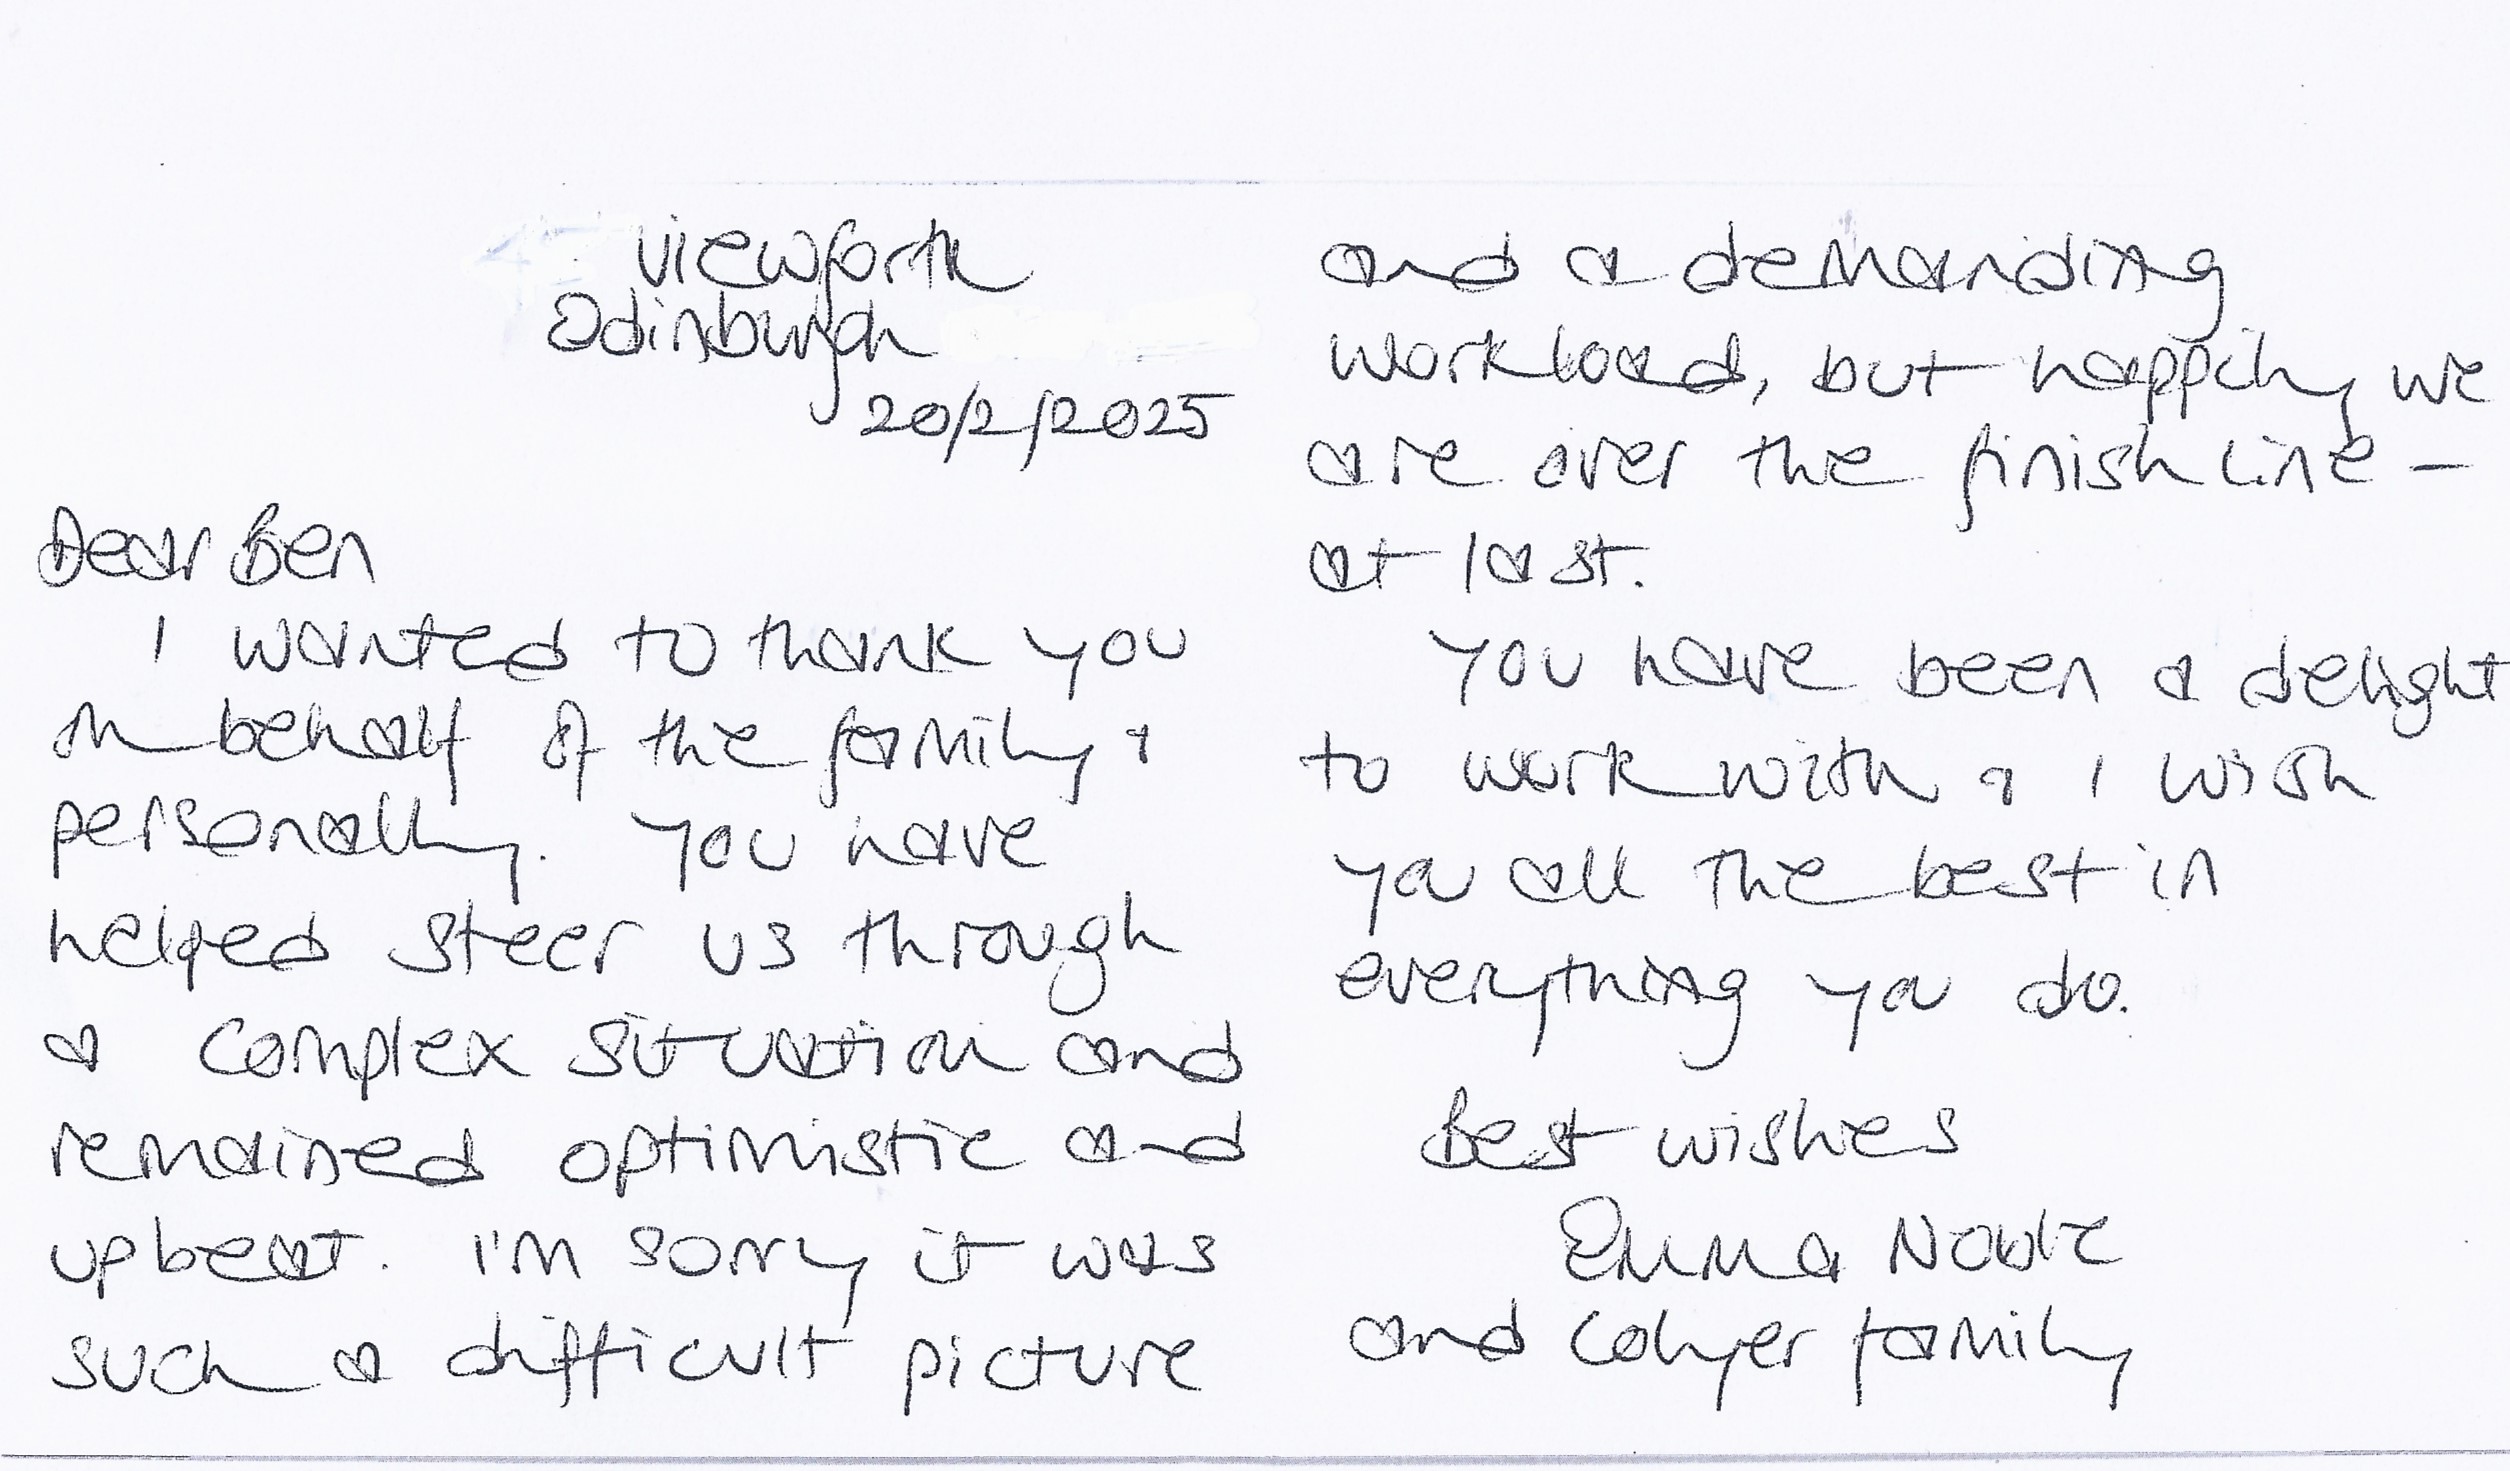 Viewforth
Edinburgh
20/2/2025
Dear Ben
I wanted to thank you
on behalf of the family &
personally. You have
helped steer us through
a complex situation and
remained optimistic and
upbeat. I'm sorry it was
such a difficult picture
and a demanding
workload, but happily we
are over the finish line –
at last.
You have been a delight
to work with & I wish
you all the best in
everything you do.
Best wishes
Emma Noble
and Colyer family